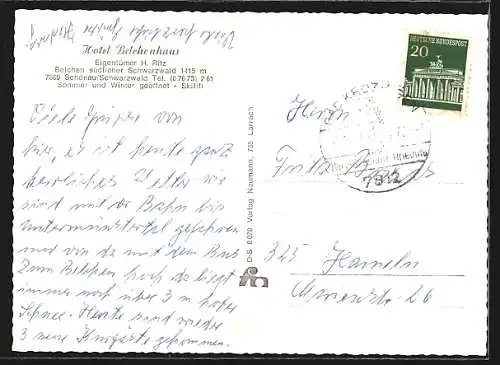 Viele herzliche Grüße
Hotel Belchenhaus
Eigentümer H. Ritz
Belchen südlicher Schwarzwald 1415 m
7869 Schönau/Schwarzwald Tel. (07673) 261
Sommer und Winter geöffnet - Skilift
Viele Grüße von
hier, es ist heute ganz
herrliches Wetter wir
sind mit der Bahn bis
untermünstertal gefahren
und von da mit dem Bus
Zum Belchen hoch da liegt
immer noch über 3 m hoher
Schnee. Heute sind wieder
3 neue Kurgäste gekommen.
D-S 8079 Verlag Naumann, 785 Lörrach
DEUTSCHE BUNDESPOST
20
7812
Herrn
Fritz
325 Hameln
26